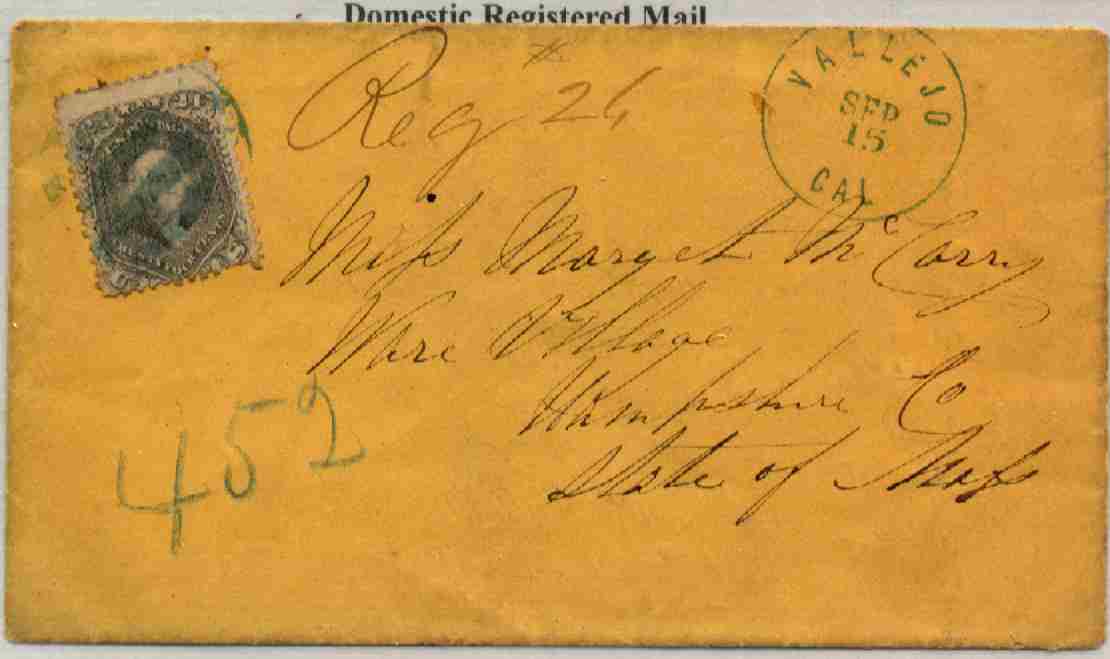 Domestic Registered Mail
Reg # 26
VALLEJO
SEP
15
CAL
Miss Marget McCarry
Ware Village
Hampshire Co
State of Mass
452